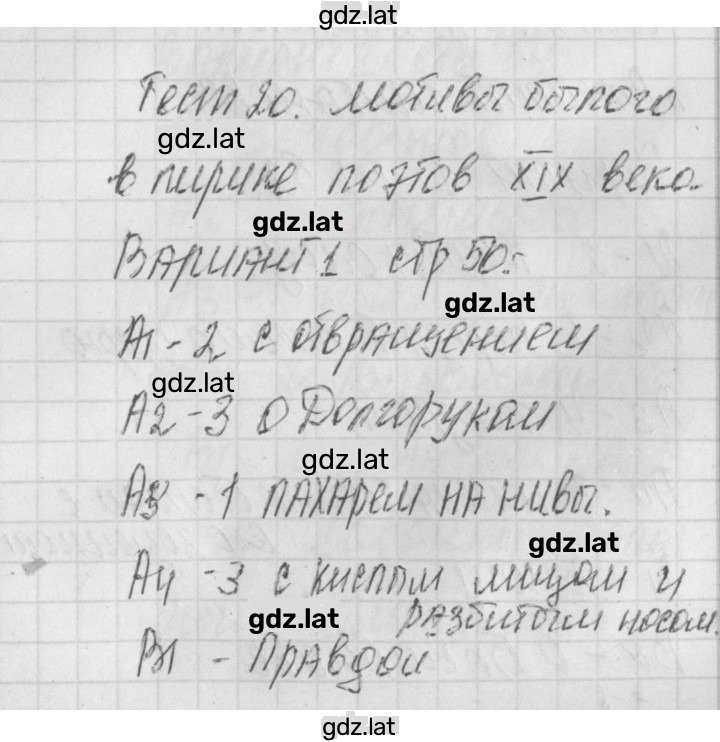 gdz.lat
Тест 20. мотивы былого
gdz.lat
в лирике поэтов XIX века.
gdz.lat
Вариант 1 стр 50.
gdz.lat
А1 - 2 с отвращением
gdz.lat
А2 - 3 о Долгоруком
gdz.lat
А3 - 1 пахарем на нивы.
gdz.lat
А4 - 3 с кислым лицом и
gdz.lat разбитым носом.
В1 - Правдой
gdz.lat